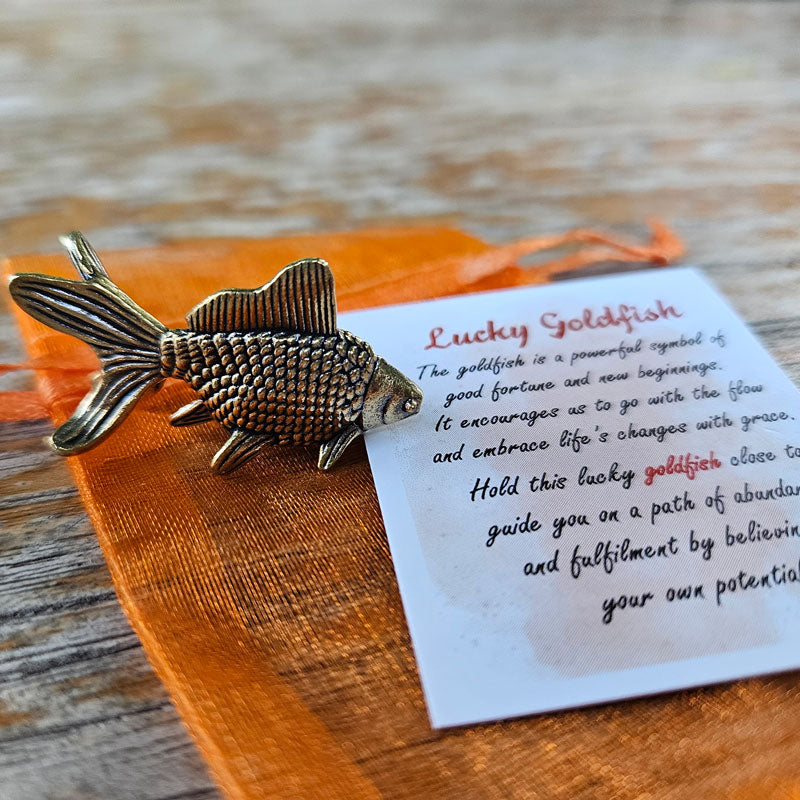 Lucky Goldfish
The goldfish is a powerful symbol of
good fortune and new beginnings.
It encourages us to go with the flow
and embrace life's changes with grace.
Hold this lucky goldfish close to
guide you on a path of
and fulfilment by
your own potential